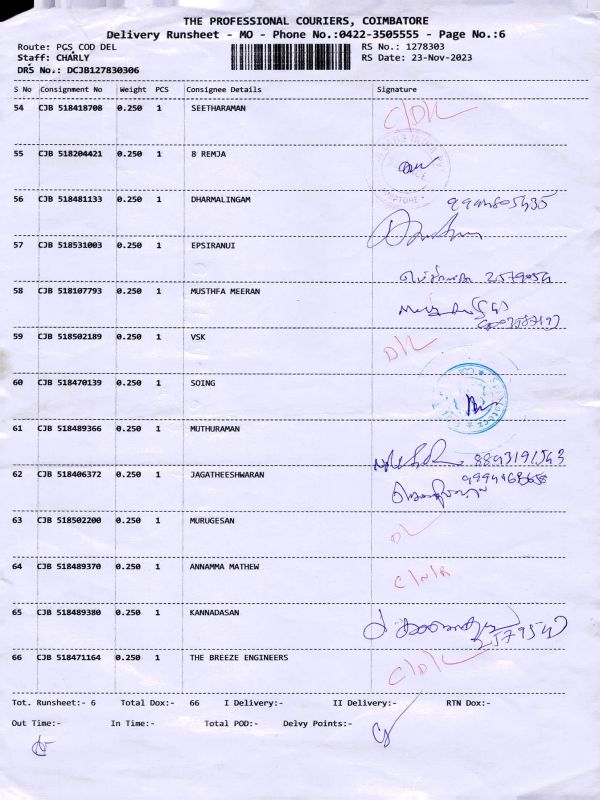 THE PROFESSIONAL COURIERS, COIMBATORE
Delivery Runsheet - MO - Phone No.:0422-3505555 - Page No.:6
Route: PCS COD DEL RS No.: 1278303
Staff: CHARLY RS Date: 23-Nov-2023
DRS No.: DCJB127830306
S No Consignment No Weight PCS Consignee Details Signature
54 CJB 518418708 0.250 1 SEETHARAMAN C/D/L
55 CJB 518204421 0.250 1 B REMJA
56 CJB 518481133 0.250 1 DHARMALINGAM
57 CJB 518531003 0.250 1 EPSIRANUI
58 CJB 518107793 0.250 1 MUSTHFA MEERAN
59 CJB 518502189 0.250 1 VSK D/L
60 CJB 518470139 0.250 1 SOING
61 CJB 518489366 0.250 1 MUTHURAMAN
8843191543
62 CJB 518406372 0.250 1 JAGATHEESHWARAN
63 CJB 518502200 0.250 1 MURUGESAN
64 CJB 518489370 0.250 1 ANNAMMA MATHEW C/N/R
65 CJB 518489380 0.250 1 KANNADASAN
66 CJB 518471164 0.250 1 THE BREEZE ENGINEERS C/D/L
Tot. Runsheet:- 6 Total Dox:- 66 I Delivery:- II Delivery:- RTN Dox:-
Out Time:- In Time:- Total POD:- Delvy Points:-